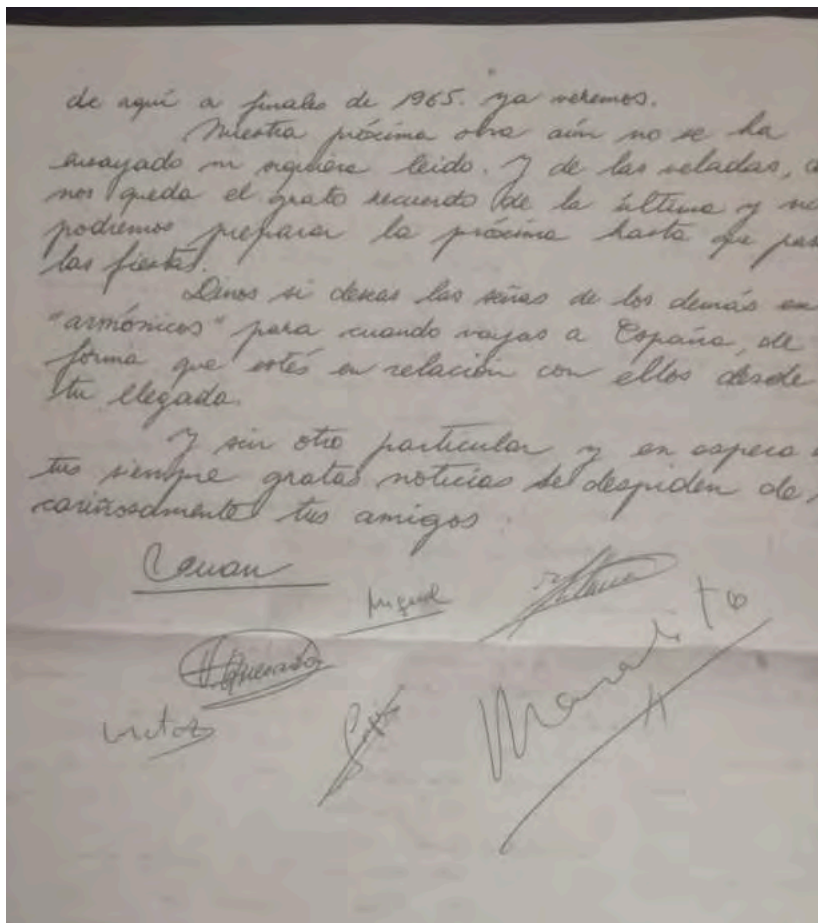 de aquí a finales de 1965. ya veremos.
Nuestra próxima obra aún no se ha
ensayado ni siquiera leido. Y de las veladas,
nos queda el grato recuerdo de la última y
podremos preparar la próxima hasta que
las fiestas.
Dinos si deseas las señas de los demás
"armónicos" para cuando vayas a España, de
forma que estés en relación con ellos desde
tu llegada.
Y sin otro particular y en espera
tus siempre gratas noticias se despiden de
cariñosamente tus amigos
Miguel
H. Quesada
Manolito